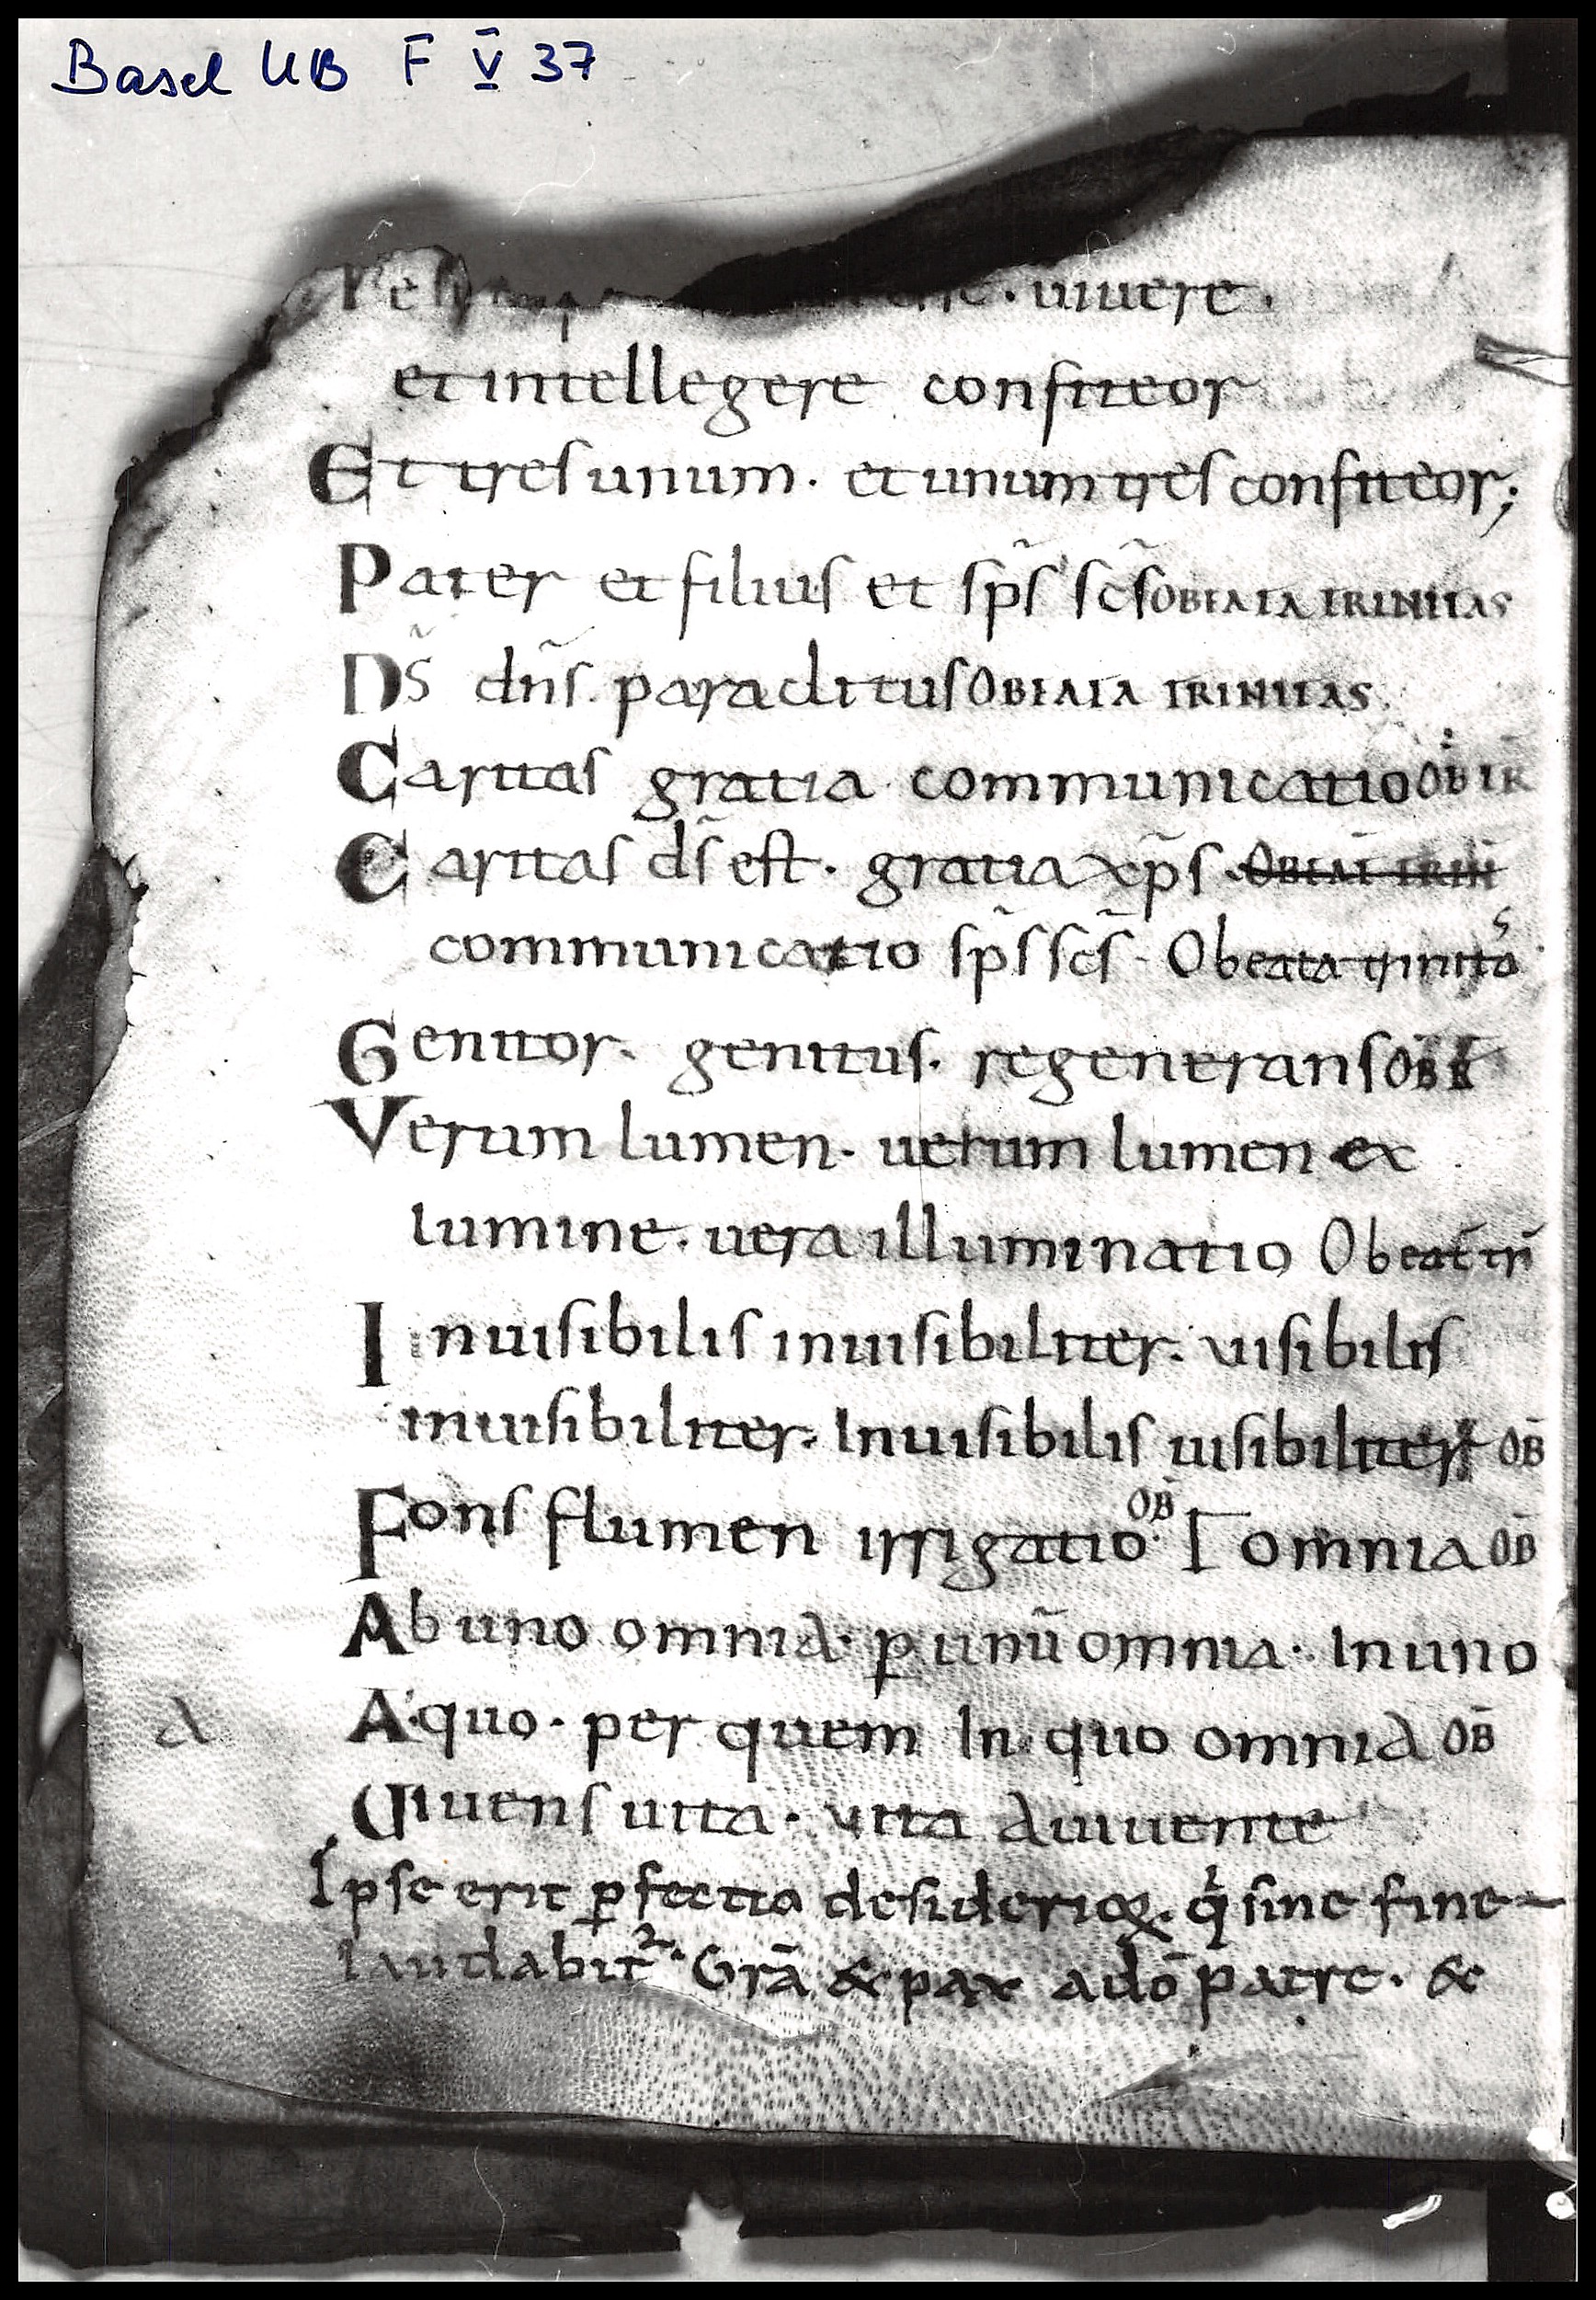 Basel UB F V 37
uiuere.
et intellegere confiteor
Et tres unum. et unum tres confiteor;
Pater et filius et sp̃s sc̃s OBEATA TRINITAS
D̃S dñs. paraclitus OBEATA TRINITAS
Caritas gratia communicatio OB TR
Caritas d̃s est. gratia xp̃s. OBEAT TRIN
communicatio sp̃s sc̃s. Obeata trinitas
Genitor. genitus. regenerans OB
Verum lumen. uerum lumen ex
lumine. uera illuminatio Obeat tri
Inuisibilis inuisibiliter. uisibilis
inuisibiliter. Inuisibilis uisibiliter OB̄
Fons flumen irrigatio. OB̄ Γ omnia OB̄
Ab uno omnia. ꝑ unũ omnia. In uno
a A quo. per quem In quo omnia OB̄
Viuens uita. uita auiuente
Ipse erit ꝑfectio desiderioꝝ. q̍ sine fine
laudabit᷑. Grã & pax ado᷑ patre. &